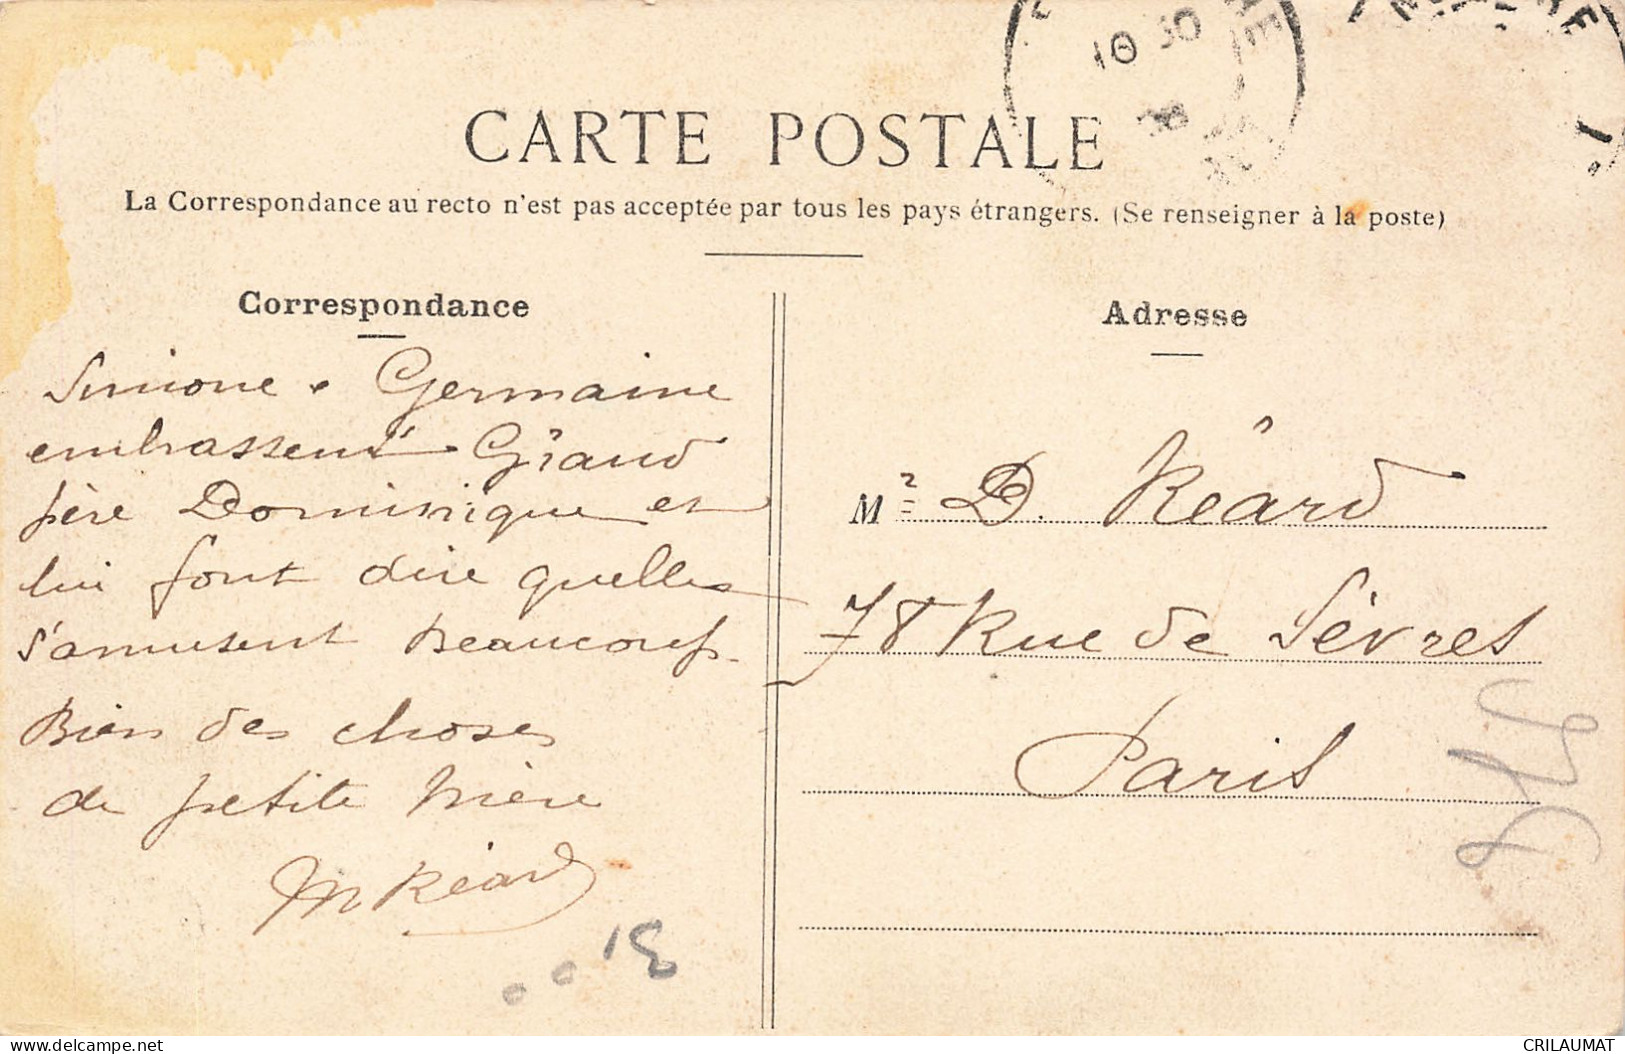 CARTE POSTALE
La Correspondance au recto n'est pas acceptée par tous les pays étrangers. (Se renseigner à la poste)
Correspondance
Simone & Germaine
embrassent Grand
père Dominique et
lui font dire quelles
s'amusent beaucoup.
Bien des choses
de petite mère
M Réard
Adresse
Mr D. Réard
78 Rue de Sèvres
Paris
10 30
CRILAUMAT